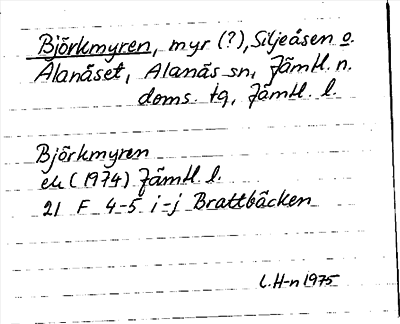 Björkmyren, myr (?), Siljeåsen o.
Alanäset, Alanäs sn, Jämtl. n.
doms. tg, Jämtl. l.
Björkmyren
ek (1974) Jämtl. l.
21 F 4-5 i-j Brattbäcken
L.H-n 1975